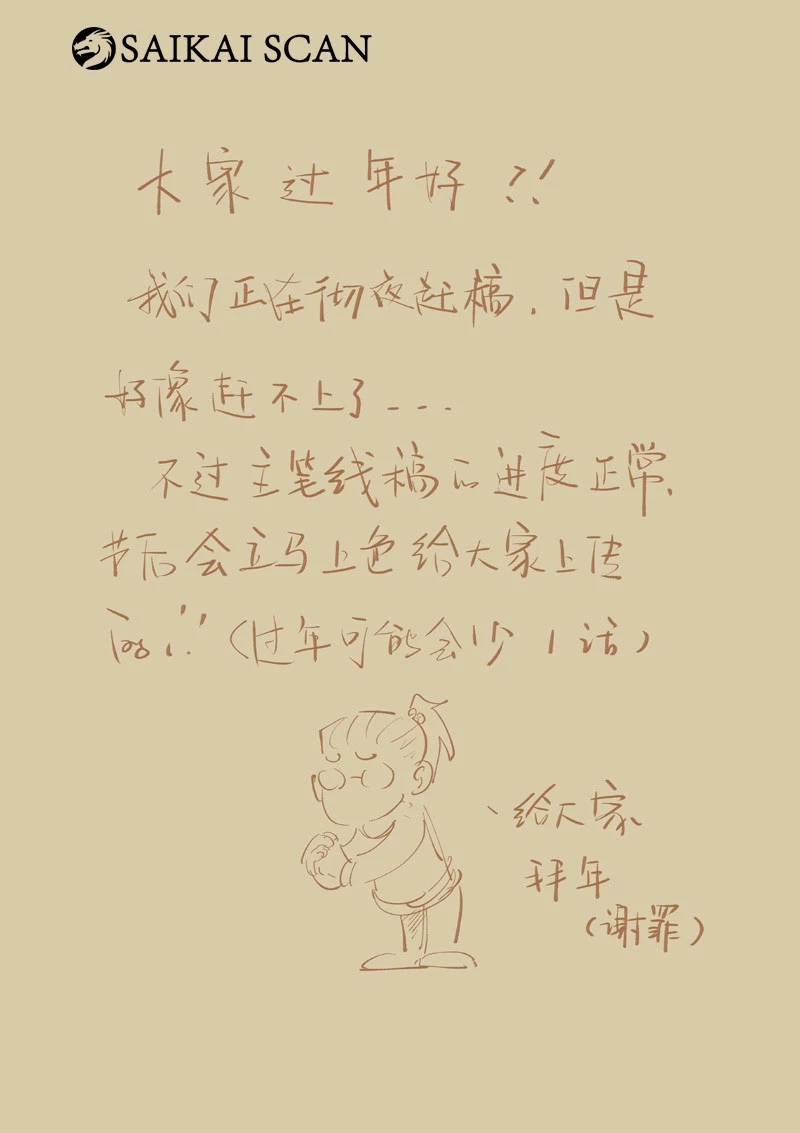 SAIKAI SCAN
大家过年好!!
我们正在彻夜赶稿，但是
好像赶不上了...
不过主笔线稿的进度正常，
节后会立马上色给大家上传
的!!（过年可能会少1话）
、给大家
拜年
（谢罪）